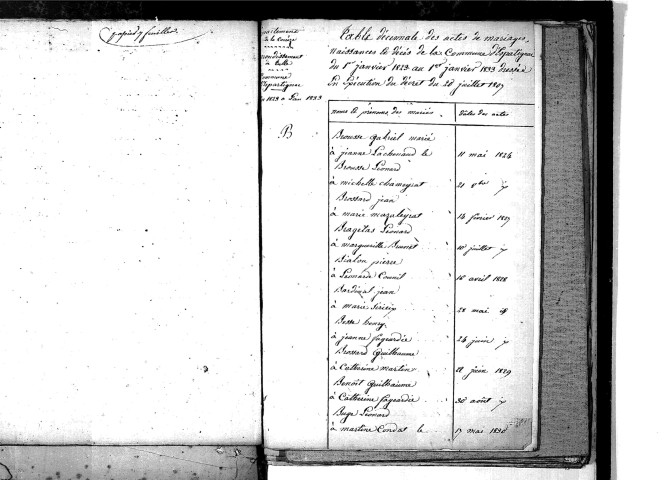 papier 9 feuilles
Département
de la Corrèze
arrondissement
de tulle
Commune
d'Espartignac
de 1823 a Janv 1833
Table décennale des actes de mariages,
naissances et décès de la Commune d'Espartignac
du 1er janvier 1823 au 1er janvier 1833 dressée
En Exécution du décret du 20 juillet 1807
noms et prénoms des mariés
dates des actes
B
Brousse Gabriel marié
à jeanne Lachenaud le
11 mai 1824
Brousse Léonard
à michelle chameyrat
21 8bre
Brossard jean
à marie mazaleyrat
14 février 1827
Léonard
à marguerite Brunet
10 juillet
Bialon pierre
à Léonarde Counil
16 avril 1828
Bardinal jean
à marie
28 mai
Besse henry
à jeanne fageardie
24 juin
Brossard Guilhaume
à Catherine martin
11 juin 1829
Benoît Guilhaume
à Catherine fageardie
30 août
Buge Léonard
à martine Condat le
17 mai 1830